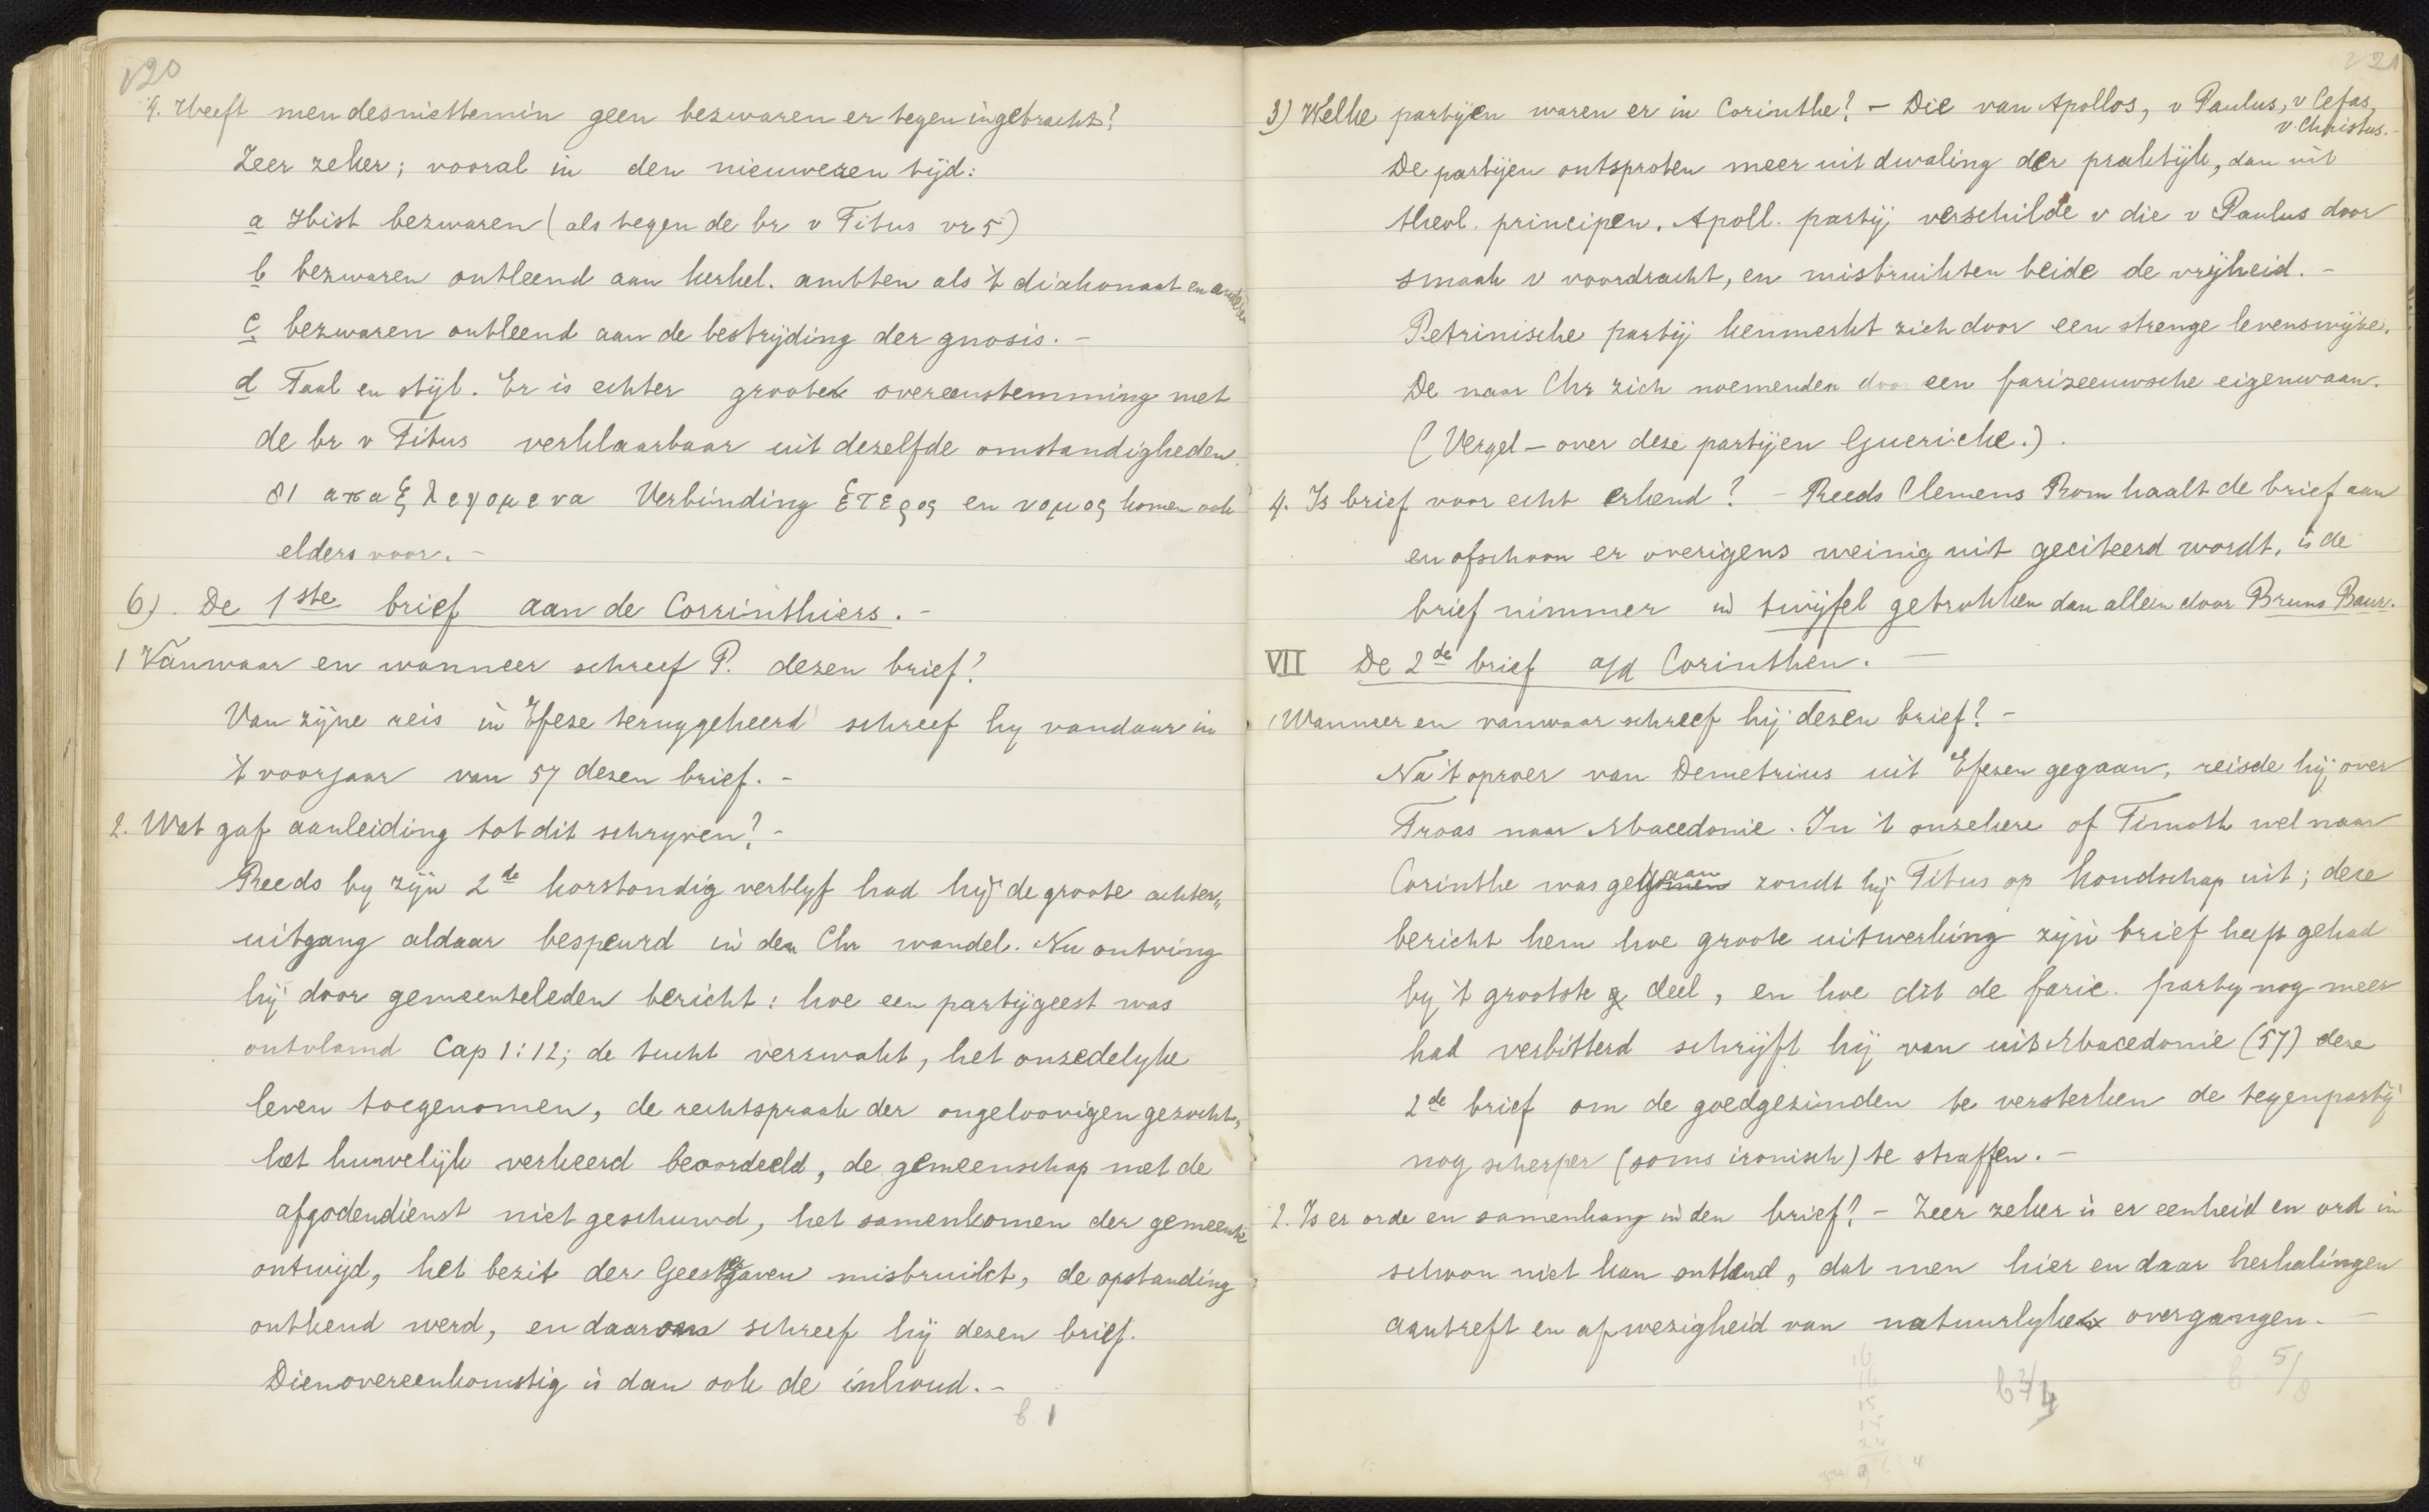 20
4. Heeft men desniettemin geen bezwaren er tegen ingebracht?
Zeer zeker; vooral in den nieuweren tijd:
a Hist bezwaren (als tegen de br v Titus vr 5)
b bezwaren ontleend aan kerkel. ambten als 't diakonaat en andere
c bezwaren ontleend aan de bestrijding der gnosis. -
d Taal en stijl. Er is echter groote overeenstemming met
de br v Titus verklaarbaar uit dezelfde omstandigheden.
81 απαξ λεγομενα Verbinding ἑτερος en νομος komen ook
elders voor. -
6). De 1ste brief aan de Corrinthiers. -
1 Vanwaar en wanneer schreef P. dezen brief?
Van zijne reis in Efeze teruggekeerd schreef hy vandaar in
't voorjaar van 57 dezen brief. -
2. Wat gaf aanleiding tot dit schryven? -
Reeds by zijn 2de korstondig verblyf had hij de groote achter„
uitgang aldaar bespeurd in den Chr wandel. Nu ontving
hij door gemeenteleden bericht: hoe een partijgeest was
ontvlamd Cap 1:12; de tucht verzwakt, het onzedelyke
leven toegenomen, de rechtspraak der ongeloovigen gezocht,
het huwelijk verkeerd beoordeeld, de gemeenschap met de
afgodendienst niet geschuwd, het samenkomen der gemeente
ontwijd, het bezit der Geestgaven misbruikt, de opstanding
ontkend werd, en daarom schreef hij dezen brief.
Dienovereenkomstig is dan ook de inhoud. -
b 1
21
3) Welke partijen waren er in Corinthe? - Die van Apollos, v Paulus, v Cefas,
v. Christus. -
De partijen ontsproten meer uit dwaling der praktijk, dan uit
theol. principen. Apoll. partij verschilde v die v Paulus door
smaak v voordracht, en misbruikten beide de vrijheid. -
Petrinische partij kenmerkt zich door een strenge levenswijze.
De naar Chr zich noemenden door een farizeeuwsche eigenwaan.
(Vergel - over deze partijen Guericke.).
4. Is brief voor echt erkend? - Reeds Clemens Rom haalt de brief aan
en ofschoon er overigens weinig uit geciteerd wordt, is de
brief nimmer in twijfel getrokken dan alleen door Bruno Baur.
VII De 2de brief a/d Corinthen. -
1 Wanneer en vanwaar schreef hij dezen brief? -
Na 't oproer van Demetrius uit Efezen gegaan, reisde hij over
Troas naar Macedonie. In 't onzekere of Timoth wel naar
Corinthe was gegaan zondt hij Titus op kondschap uit; deze
bericht hem hoe groote uitwerking zijn brief heeft gehad
by 't grootste deel, en hoe dit de farie. party nog meer
had verbitterd schrijft hij van uit Macedonie (57) deze
2de brief om de goedgezinden te versterken de tegenpartij
nog scherper (soms ironisch) te straffen. -
2. Is er orde en samenhang in den brief? - Zeer zeker is er eenheid en ord in
schoon niet kan ontkend, dat men hier en daar herhalingen
aantreft en afwezigheid van natuurlyke overgangen. -
b 5/8